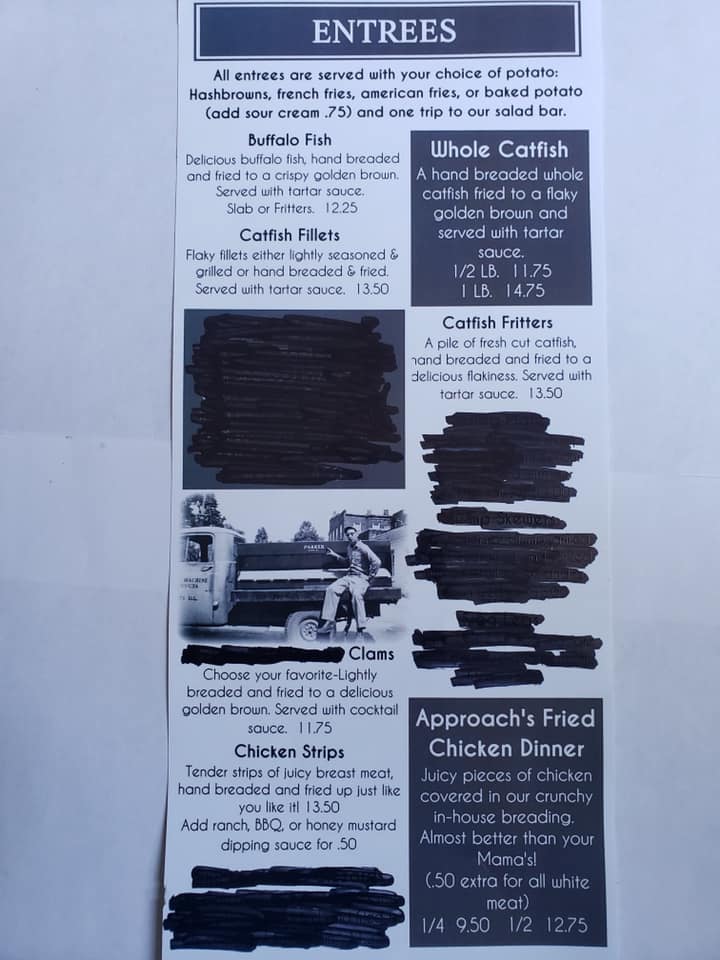 ENTREES
All entrees are served with your choice of potato:
Hashbrowns, french fries, american fries, or baked potato
(add sour cream .75) and one trip to our salad bar.
Buffalo Fish
Delicious buffalo fish, hand breaded
and fried to a crispy golden brown.
Served with tartar sauce.
Slab or Fritters. 12.25
Catfish Fillets
Flaky fillets either lightly seasoned &
grilled or hand breaded & fried.
Served with tartar sauce. 13.50
PARKER
MACHINE
Clams
Choose your favorite-Lightly
breaded and fried to a delicious
golden brown. Served with cocktail
sauce. 11.75
Chicken Strips
Tender strips of juicy breast meat,
hand breaded and fried up just like
you like it! 13.50
Add ranch, BBQ, or honey mustard
dipping sauce for .50
Whole Catfish
A hand breaded whole
catfish fried to a flaky
golden brown and
served with tartar
sauce.
1/2 LB. 11.75
1 LB. 14.75
Catfish Fritters
A pile of fresh cut catfish,
hand breaded and fried to a
delicious flakiness. Served with
tartar sauce. 13.50
Skewers
Approach's Fried
Chicken Dinner
Juicy pieces of chicken
covered in our crunchy
in-house breading.
Almost better than your
Mama's!
(.50 extra for all white
meat)
1/4 9.50 1/2 12.75